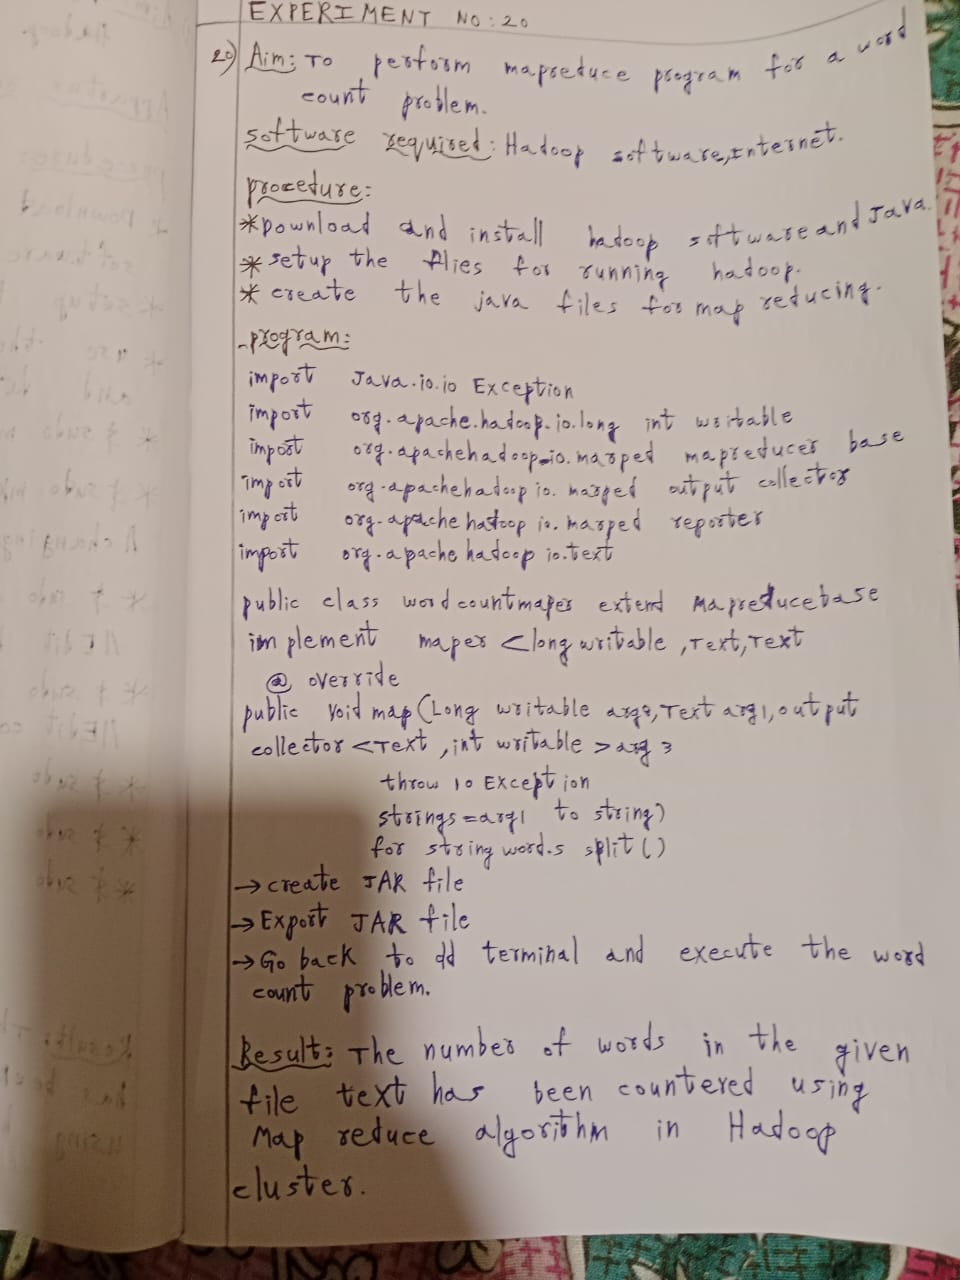 EXPERIMENT NO: 20
20) Aim: To perform mapreduce program for a word
count problem.
software required: Hadoop software, Internet.
procedure:
* Download and install hadoop software and Java.
* setup the flies for running hadoop.
* create the java files for map reducing.
program:
import Java.io.io Exception
import org.apache.hadoop.io.long int writable
import org.apachehadoop.io.marped mapreducer base
import org.apachehadoop io. marped output collector
import org.apache hadoop io. marped reporter
import org.apache hadoop io.text
public class word countmaper extend Mapreducebase
implement maper <long writable, Text, Text
@ override
public void map (Long writable arg0, Text arg1, output
collector <Text, int writable > arg 3
throw io Exception
strings = arg1 to string)
for string word.s split()
→ create JAR file
→ Export JAR file
→ Go back to terminal and execute the word
count problem.
Result: The number of words in the given
file text has been countered using
Map reduce algorithm in Hadoop
cluster.